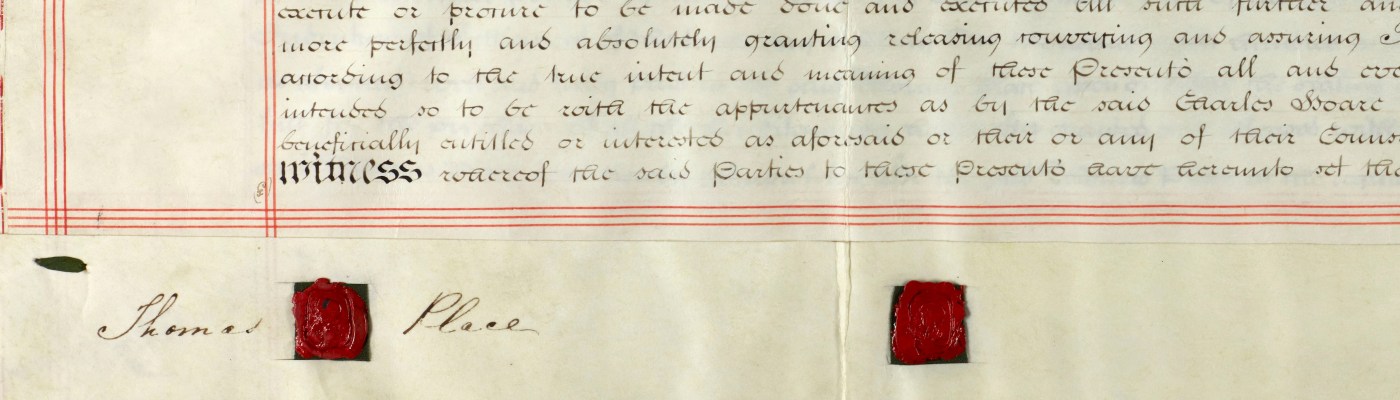 execute or procure to be made done and executed all such further an
more perfectly and absolutely granting releasing conveying and assuring
according to the true intent and meaning of these Presents all and eve
intended so to be with the appurtenances as by the said Charles Hoare
beneficially entitled or interested as aforesaid or their or any of their Couns
Witness whereof the said Parties to these Presents have hereunto set the
Thomas Place